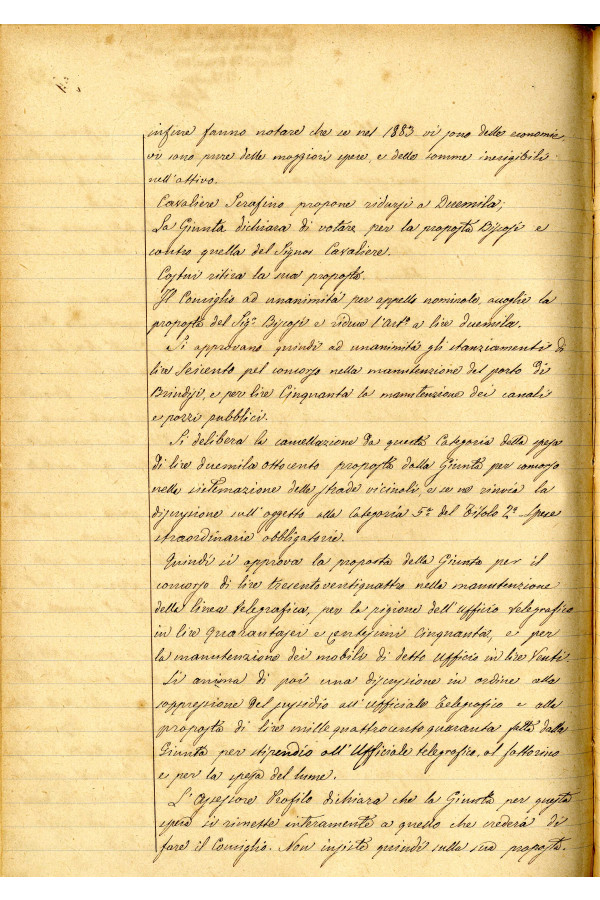 infine fanno notare che se nel 1883 vi sono delle economie,
vi sono pure delle maggiori spese, e delle somme inesigibili
nell'attivo.
Cavaliere Serafino propone ridursi a Duemila;
La Giunta dichiara di votare per la proposta Bisogi e
contro quella del Signor Cavaliere.
Costui ritira la sua proposta.
Il Consiglio ad unanimità per appello nominale, accoglie la
proposta del Sigr. Bisogi e riduce l'Arto. a lire duemila.
Si approvano quindi ad unanimità gli stanziamenti di
lire Seicento pel concorso nella manutenzione del porto di
Brindisi, e per lire Cinquanta la manutenzione dei canali
e pozzi pubblici.
Si delibera la cancellazione da questa Categoria della spesa
di lire duemila ottocento proposta dalla Giunta per concorso
nella sistemazione delle strade vicinali, e se ne rinvia la
discussione sull'oggetto alla Categoria 5a. del Titolo 2o. Spese
straordinarie obbligatorie.
Quindi si approva la proposta della Giunta per il
concorso di lire trecentoventiquattro nella manutenzione
della linea telegrafica, per la pigione dell'Ufficio telegrafico
in lire Quarantasei e centesimi Cinquanta, e per
la manutenzione dei mobili di detto Ufficio in lire Venti.
Si anima di poi una discussione in ordine alla
soppressione del sussidio all'Ufficiale Telegrafico e alla
proposta di lire mille quattrocento quaranta fatta dalla
Giunta per stipendio all'Ufficiale telegrafico, al fattorino
e per la spesa del lume.
L'Assessore Profilo dichiara che la Giunta per questa
spesa si rimette interamente a quello che crederà di
fare il Consiglio. Non insiste quindi sulla sua proposta.